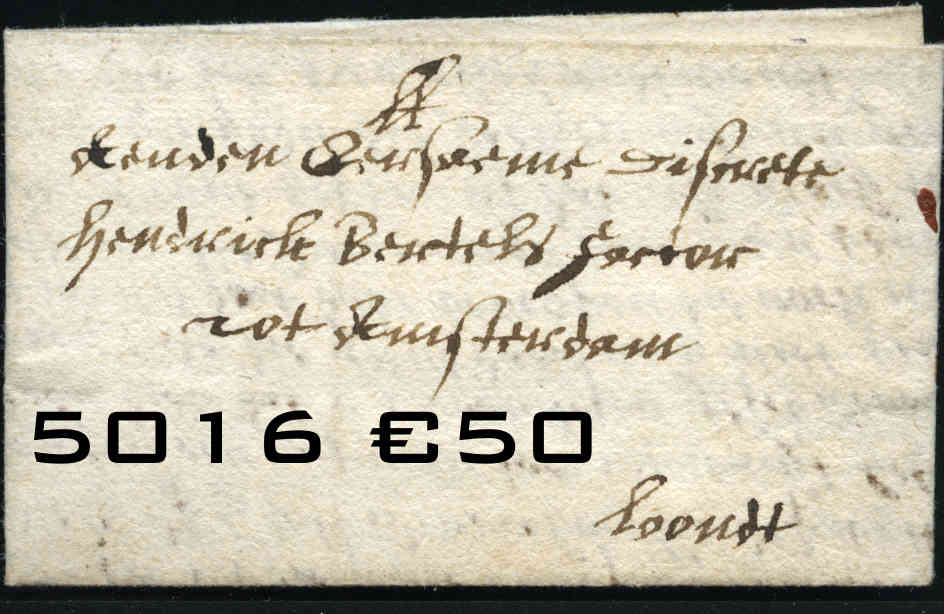 Aenden Eersaeme discrete
Hendrick Bertels factor
tot Amsterdam
5016 €50
Loondt